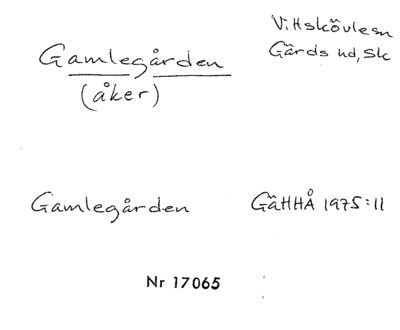 Vittskövle sn
Gärds hd, Sk
Gamlegården
(åker)
Gamlegården GäHHÅ 1975:11
Nr 17065